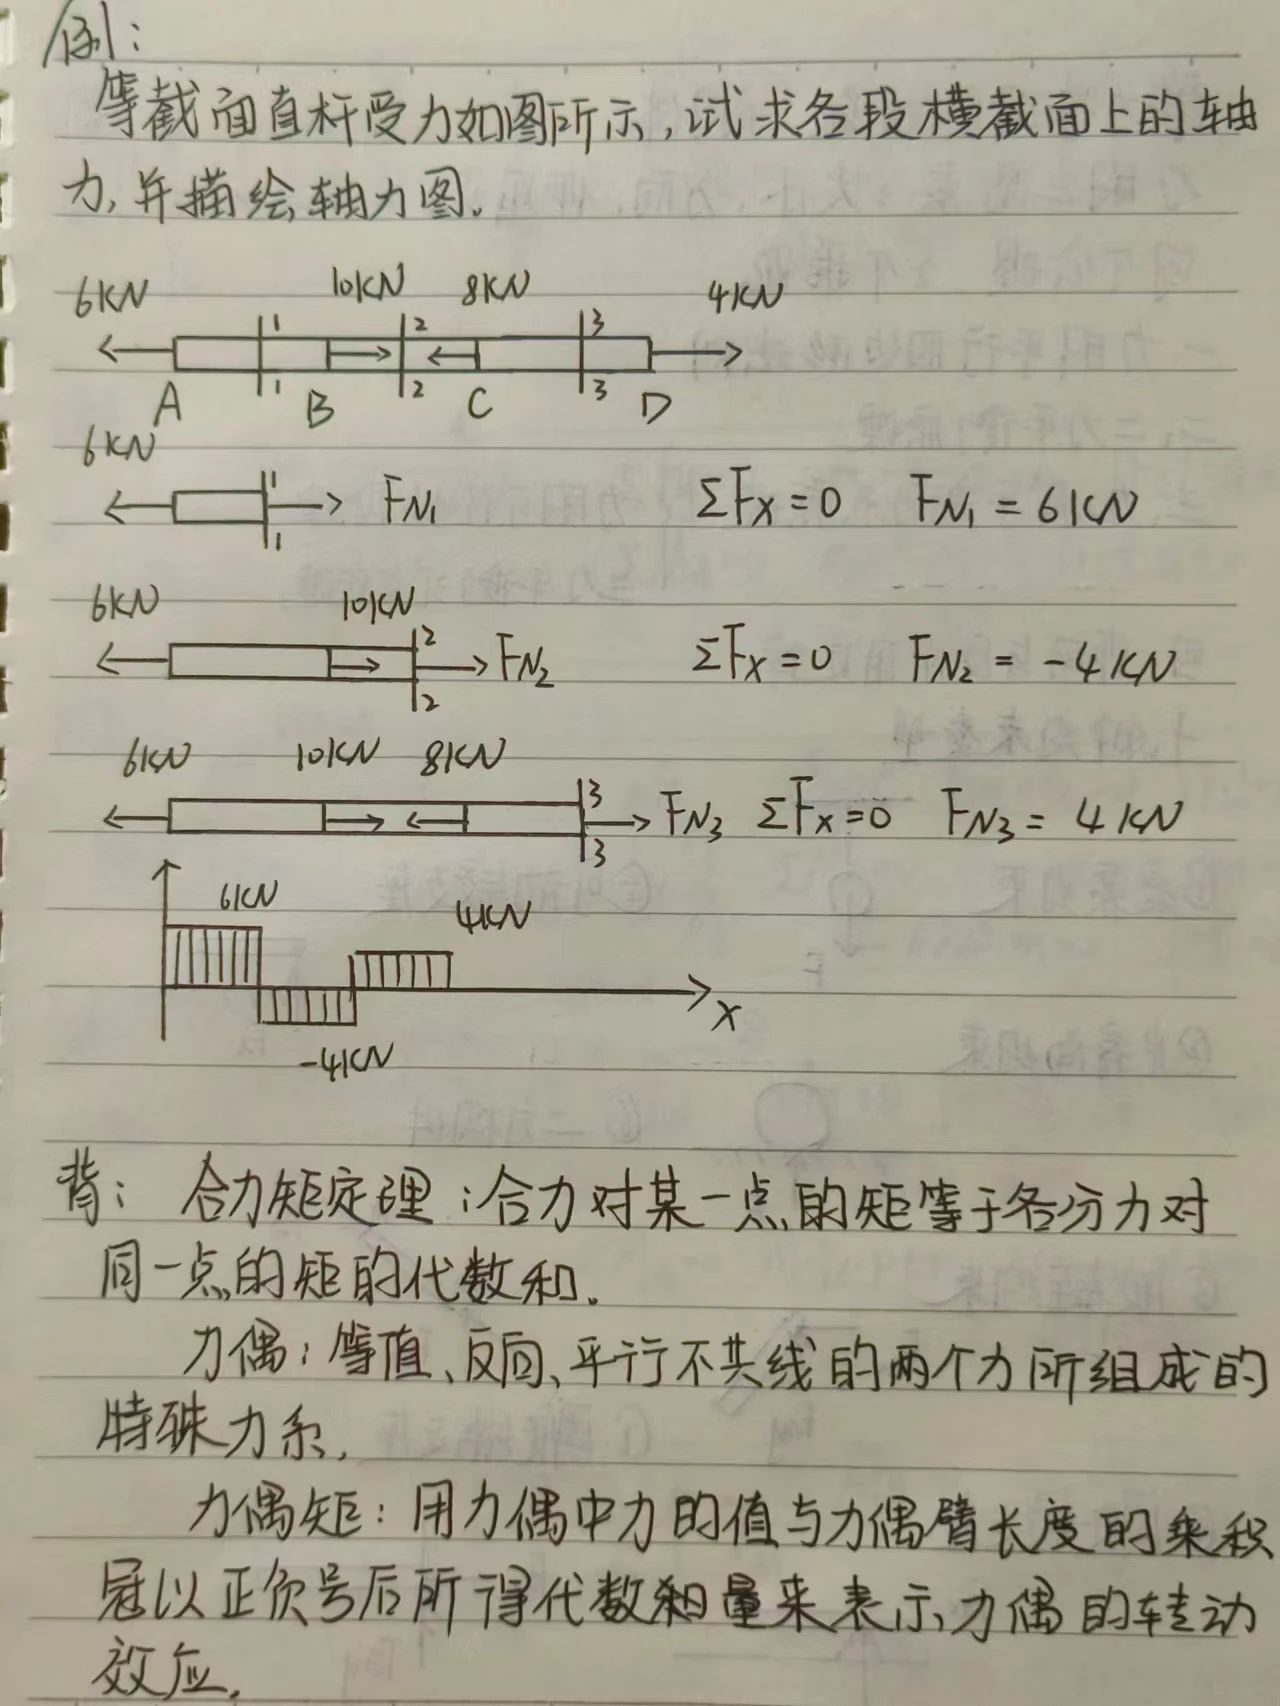 例:
等截面直杆受力如图所示,试求各段横截面上的轴
力,并描绘轴力图.
6KN 10KN 8KN 4KN
1 2 3
1 2 3
A B C D
6KN
1
FN1 ΣFx=0 FN1=6KN
1
6KN 10KN
2
FN2 ΣFx=0 FN2=-4KN
2
6KN 10KN 8KN
3
FN3 ΣFx=0 FN3=4KN
3
6KN 4KN
x
-4KN
背: 合力矩定理:合力对某一点的矩等于各分力对
同一点的矩的代数和.
力偶:等值、反向、平行不共线的两个力所组成的
特殊力系.
力偶矩:用力偶中力的值与力偶臂长度的乘积
冠以正负号后所得代数量来表示力偶的转动
效应.